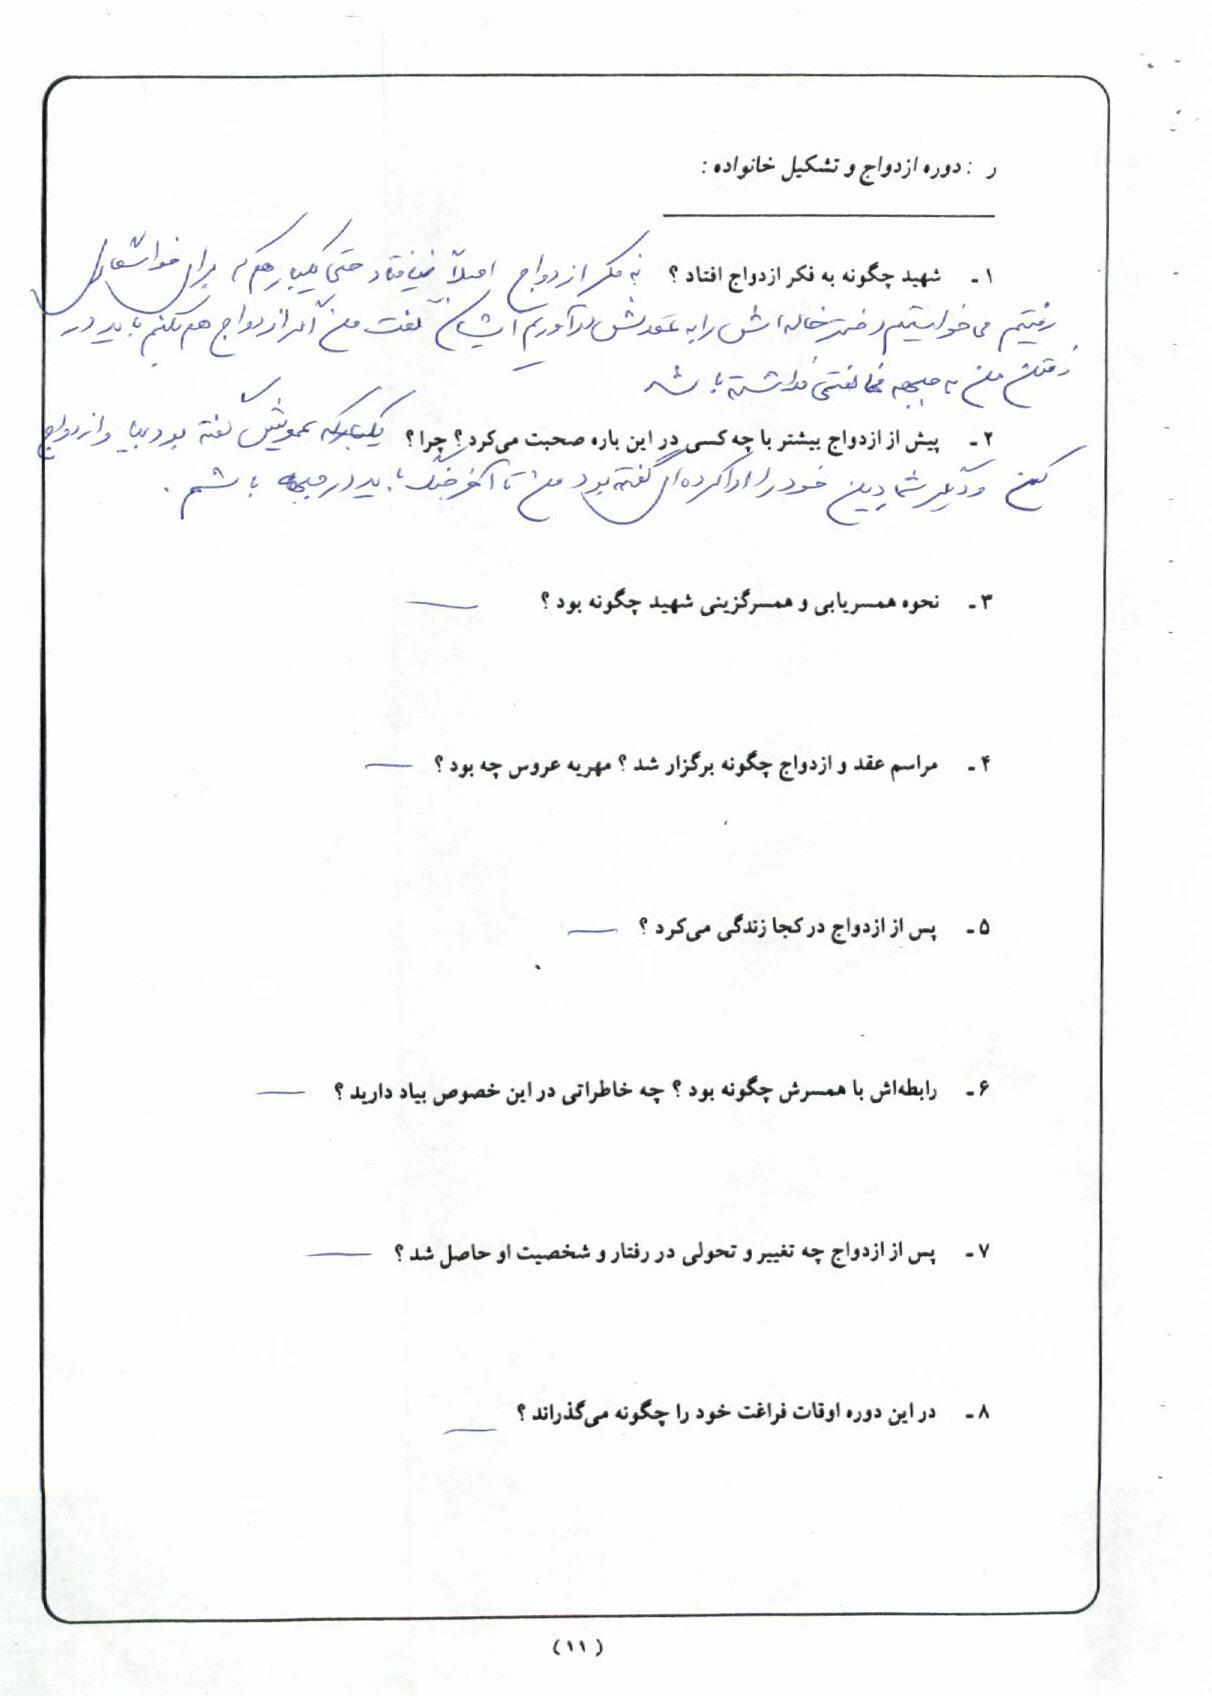 ر : دوره ازدواج و تشکیل خانواده :
۱ ـ شهید چگونه به فکر ازدواج افتاد ؟ به فکر ازدواج اصلاً نیفتاد حتی یکبار هم که برای خواستگاری
رفتیم می‌خواستیم دختر خاله‌اش را به عقدش درآوریم ایشان گفت من اگر ازدواج هم بکنم باید در
رفتن من به جبهه مخالفتی نداشته باشد
۲ ـ پیش از ازدواج بیشتر با چه کسی در این باره صحبت می‌کرد ؟ چرا ؟ یکبار که عمویش گفته بود بیا و ازدواج
کن و دیگر شما دین خود را ادا کرده‌ای گفته بود من تا آخر جنگ باید در جبهه باشم .
۳ ـ نحوه همسریابی و همسرگزینی شهید چگونه بود ؟ —
۴ ـ مراسم عقد و ازدواج چگونه برگزار شد ؟ مهریه عروس چه بود ؟ —
۵ ـ پس از ازدواج در کجا زندگی می‌کرد ؟ —
۶ ـ رابطه‌اش با همسرش چگونه بود ؟ چه خاطراتی در این خصوص بیاد دارید ؟ —
۷ ـ پس از ازدواج چه تغییر و تحولی در رفتار و شخصیت او حاصل شد ؟ —
۸ ـ در این دوره اوقات فراغت خود را چگونه می‌گذراند ؟ —
(۱۱)